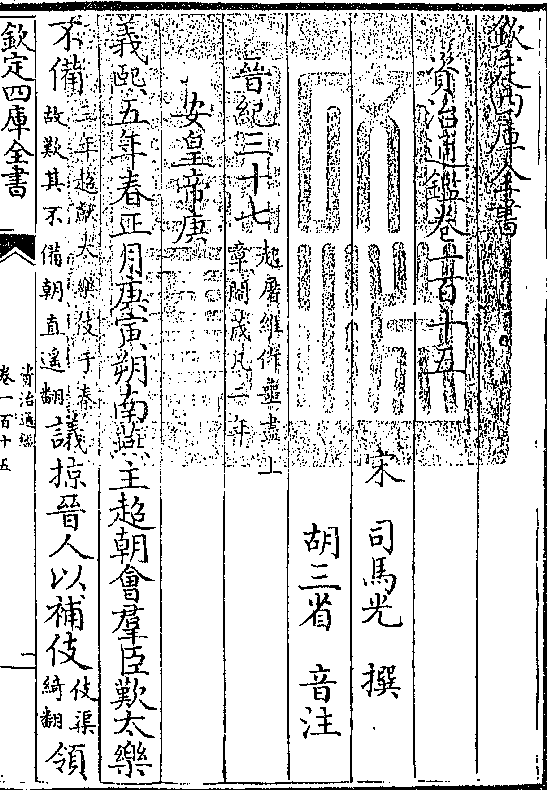 欽定四庫全書
資治通鑑卷一百十五
宋 司馬光 撰
胡三省 音注
晉紀三十七起屠維作噩盡上章閹茂凡二年
安皇帝庚
義熙五年春正月庚寅朔南燕主超朝會羣臣歎太樂
不備二年超獻太樂伎于秦故歎其不備朝直遥翻議掠晉人以補伎伎渠綺翻領
欽定四庫全書
資治通鑑
卷一百十五
一